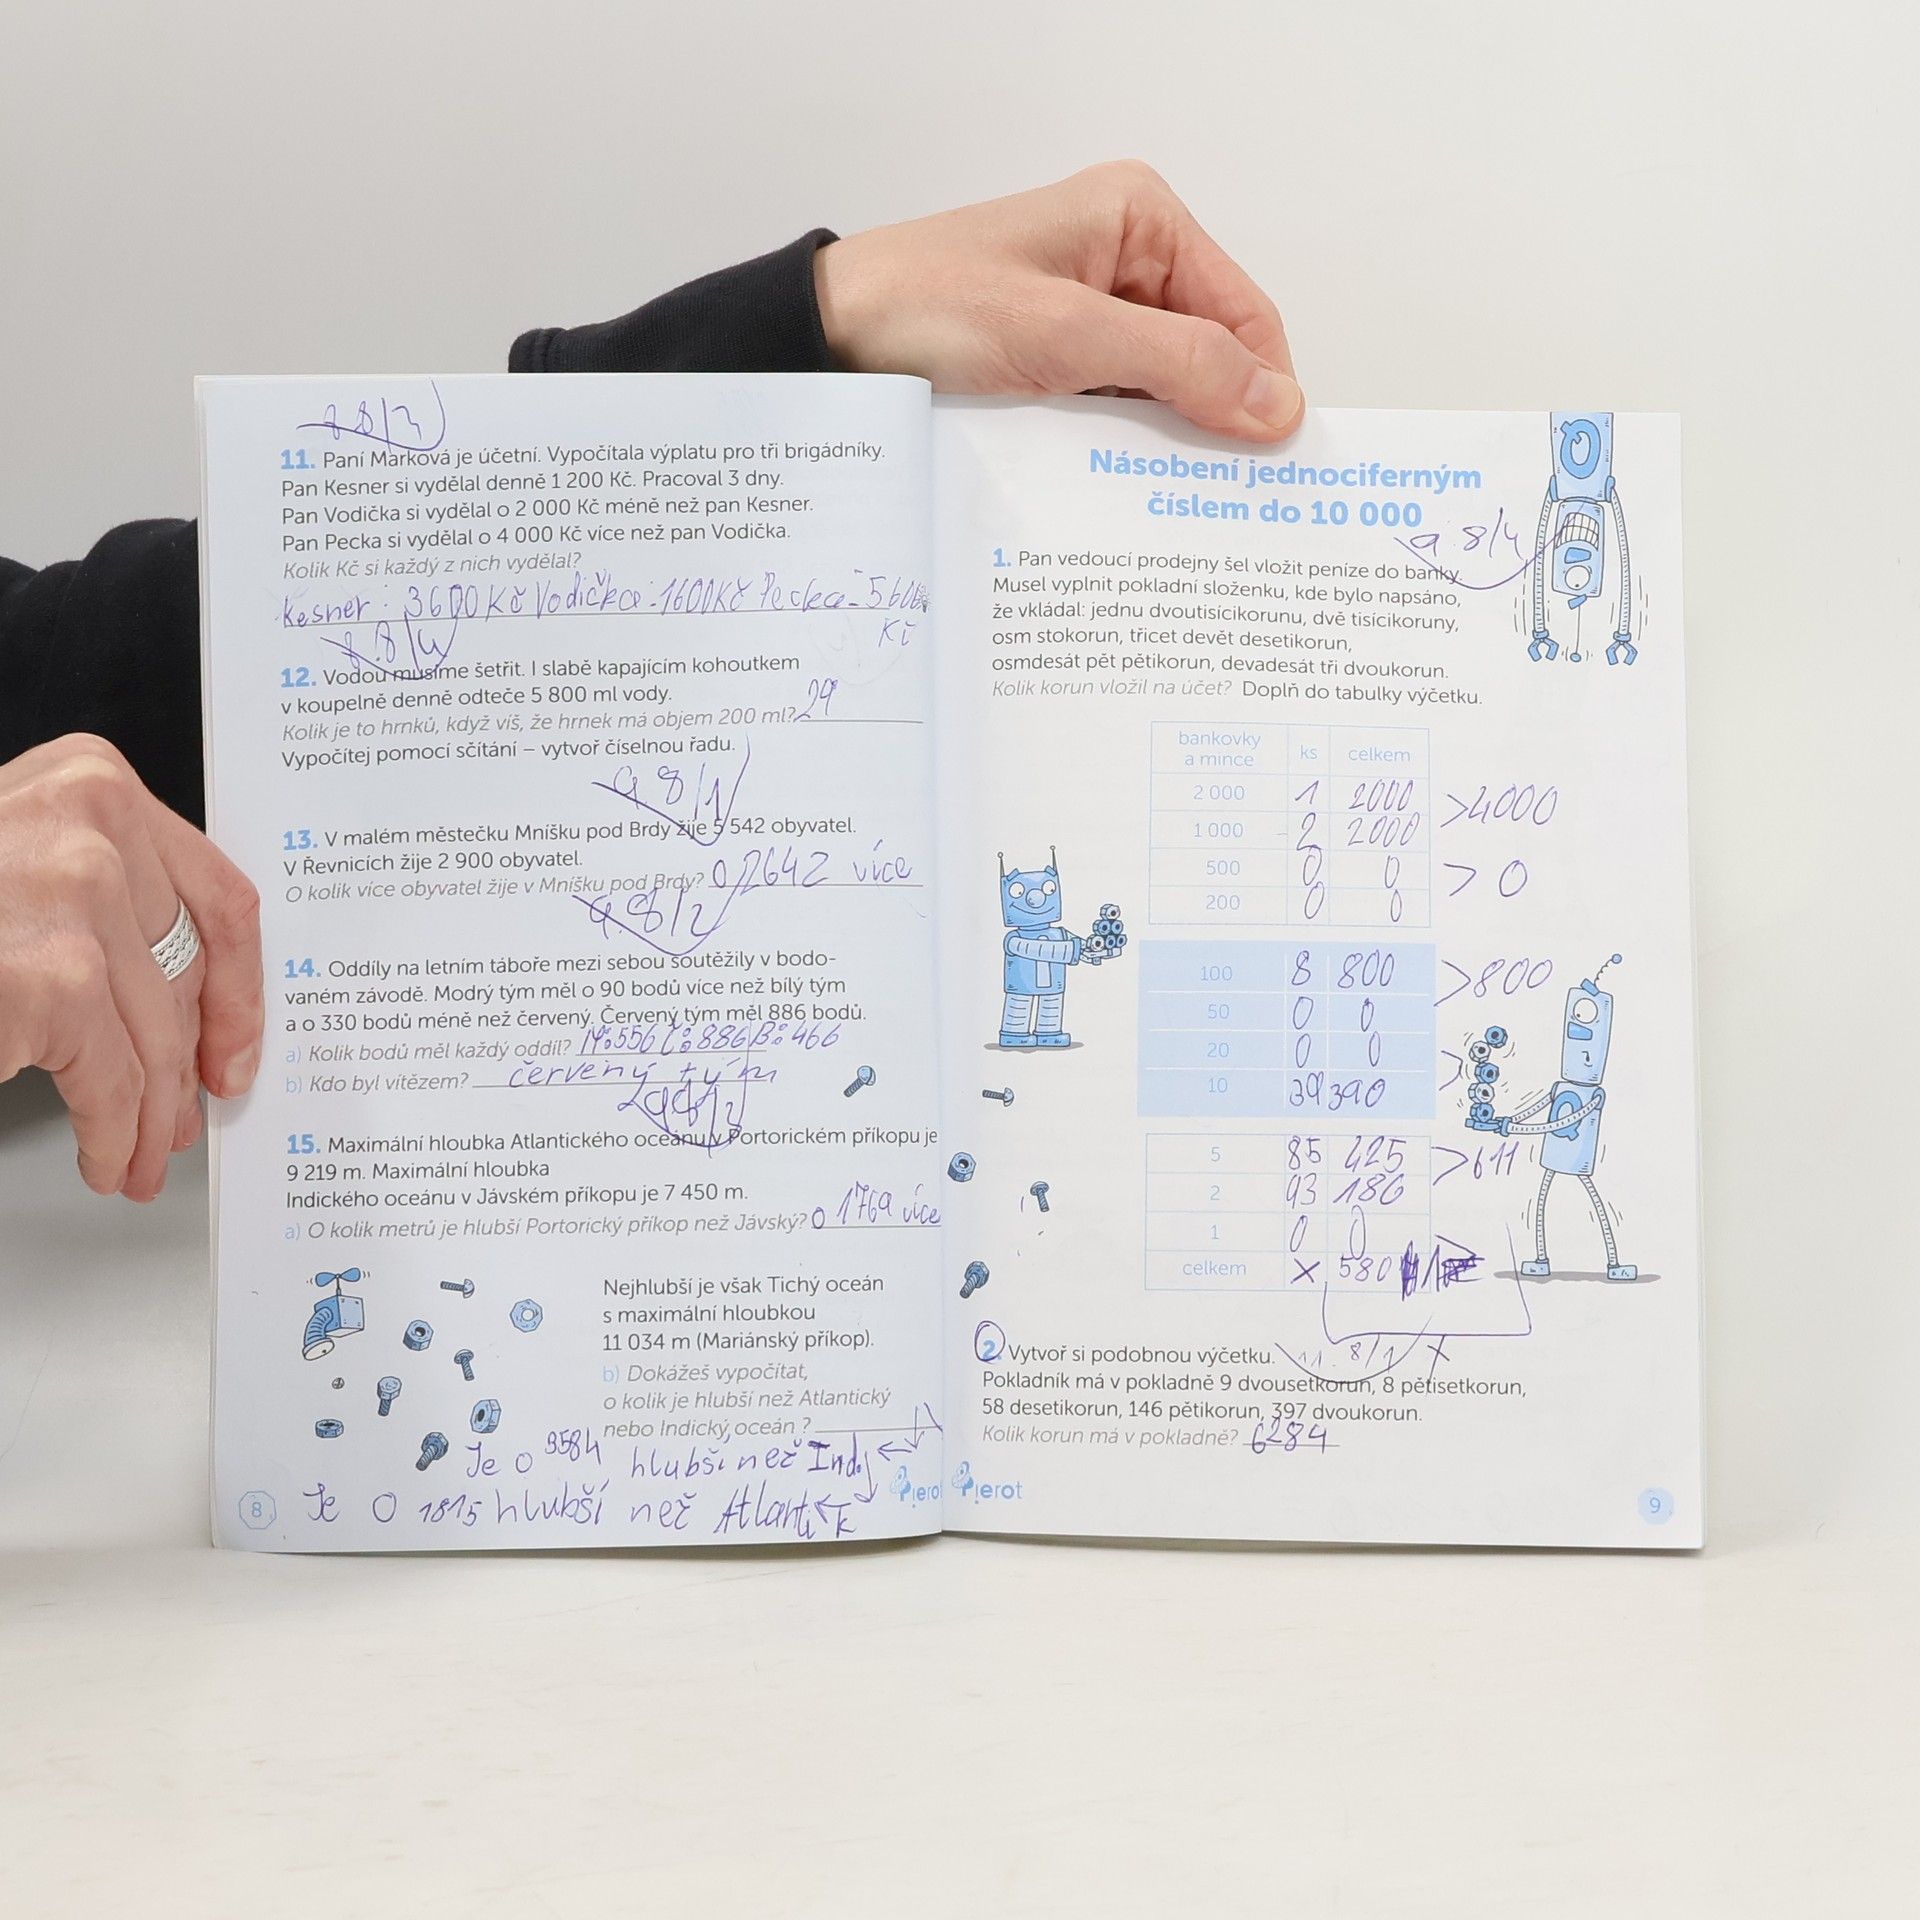 8.8/3
11. Paní Marková je účetní. Vypočítala výplatu pro tři brigádníky.
Pan Kesner si vydělal denně 1 200 Kč. Pracoval 3 dny.
Pan Vodička si vydělal o 2 000 Kč méně než pan Kesner.
Pan Pecka si vydělal o 4 000 Kč více než pan Vodička.
Kolik Kč si každý z nich vydělal?
Kesner: 3600Kč Vodička-1600Kč Pecka-5600
Kč
8.8/4
12. Vodou musíme šetřit. I slabě kapajícím kohoutkem
v koupelně denně odteče 5 800 ml vody.
Kolik je to hrnků, když víš, že hrnek má objem 200 ml? 29
Vypočítej pomocí sčítání – vytvoř číselnou řadu.
9.8/1
13. V malém městečku Mníšku pod Brdy žije 5 542 obyvatel.
V Řevnicích žije 2 900 obyvatel.
O kolik více obyvatel žije v Mníšku pod Brdy? O 2642 více
9.8/2
14. Oddíly na letním táboře mezi sebou soutěžily v bodo-
vaném závodě. Modrý tým měl o 90 bodů více než bílý tým
a o 330 bodů méně než červený. Červený tým měl 886 bodů.
a) Kolik bodů měl každý oddíl? M:556 Č:886 B:466
b) Kdo byl vítězem? červený tým
15. Maximální hloubka Atlantického oceánu v Portorickém příkopu je
9 219 m. Maximální hloubka
Indického oceánu v Jávském příkopu je 7 450 m.
a) O kolik metrů je hlubší Portorický příkop než Jávský? o 1769 více
Nejhlubší je však Tichý oceán
s maximální hloubkou
11 034 m (Mariánský příkop).
b) Dokážeš vypočítat,
o kolik je hlubší než Atlantický
nebo Indický oceán ?
Je o 3584 hlubší než Ind.
Je O 1815 hlubší než Atlantik
Pierot
8
Násobení jednociferným
číslem do 10 000
9.8/4
1. Pan vedoucí prodejny šel vložit peníze do banky.
Musel vyplnit pokladní složenku, kde bylo napsáno,
že vkládal: jednu dvoutisícikorunu, dvě tisícikoruny,
osm stokorun, třicet devět desetikorun,
osmdesát pět pětikorun, devadesát tři dvoukorun.
Kolik korun vložil na účet? Doplň do tabulky výčetku.
bankovky
a mince ks celkem
2 000 1 2000 >4000
1 000 2 2000
500 0 0 >0
200 0 0
100 8 800 >800
50 0 0
20 0 0 >
10 39 390
5 85 425 >611
2 93 186
1 0 0
celkem x 580
2. Vytvoř si podobnou výčetku. 11.8/1 x
Pokladník má v pokladně 9 dvousetkorun, 8 pětisetkorun,
58 desetikorun, 146 pětikorun, 397 dvoukorun.
Kolik korun má v pokladně? 6284
Pierot
9